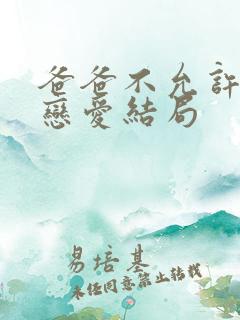 爸爸不允許
戀愛結局
易培基
未经同意禁止转载